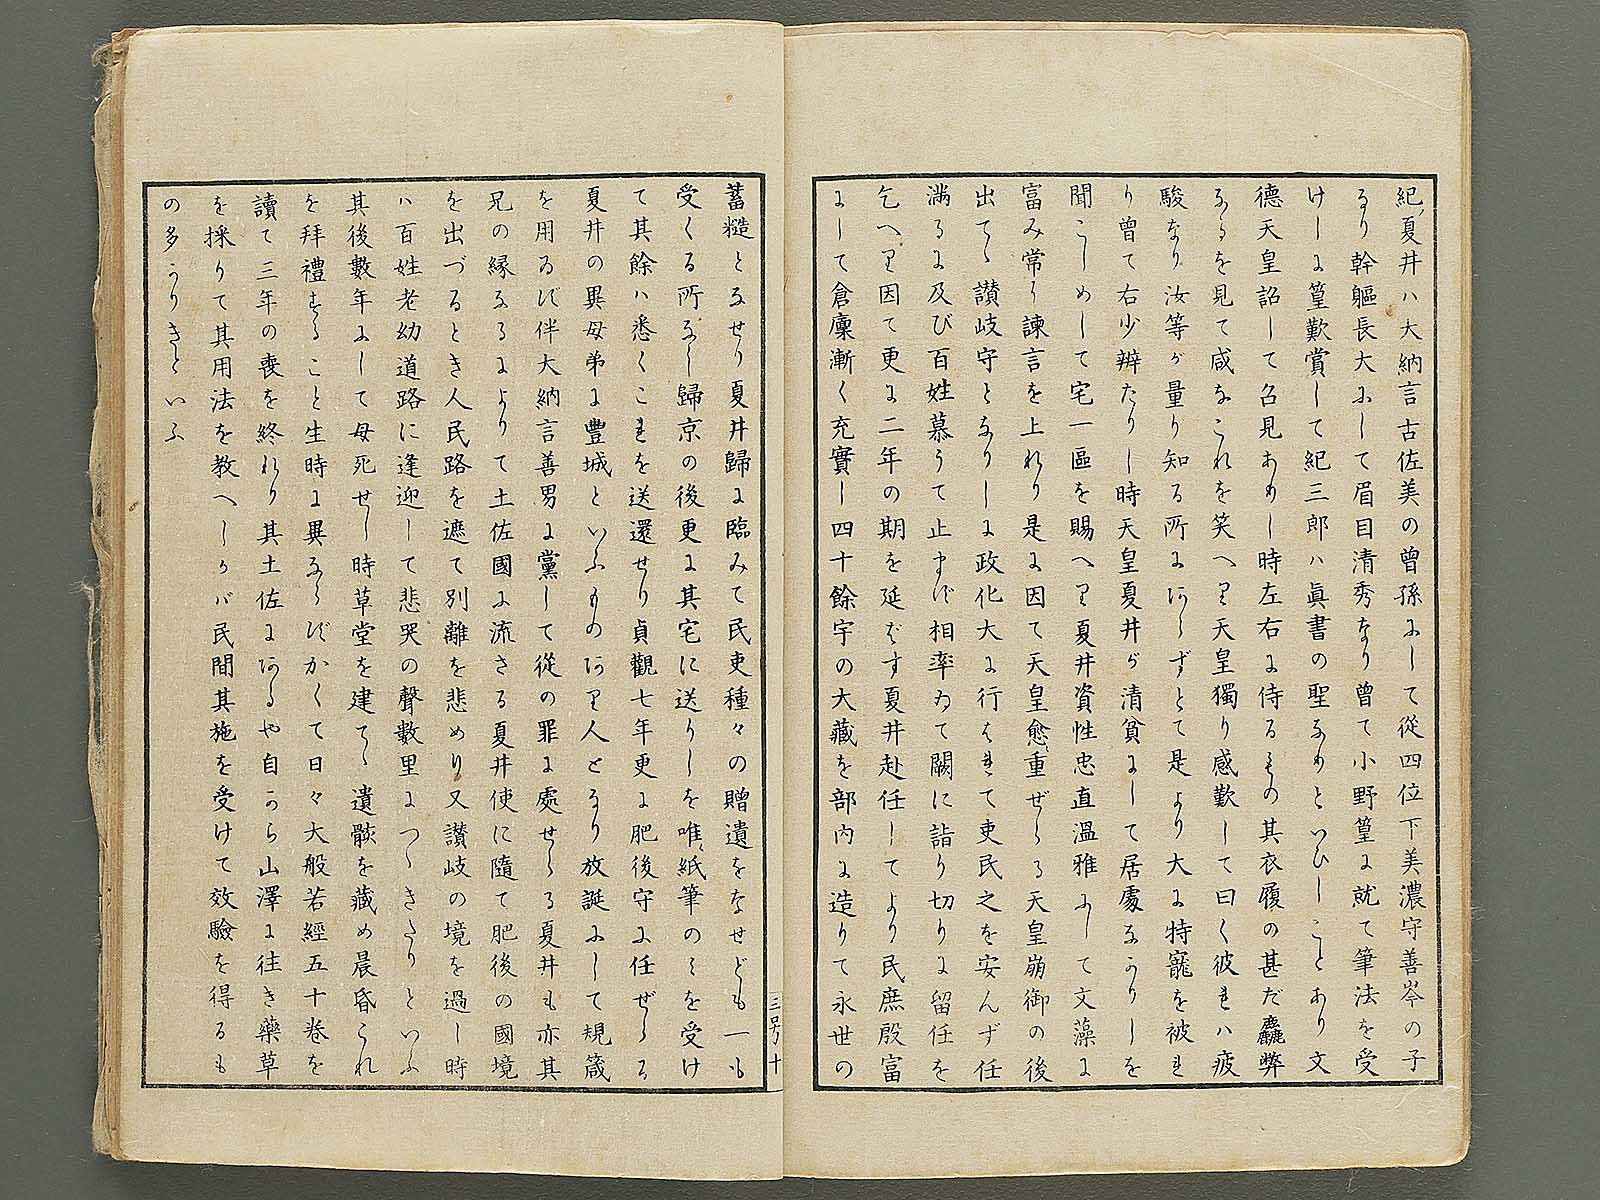 紀夏井ハ大納言古佐美の曽孫にして從四位下美濃守善岑の子
なり幹軀長大にして眉目清秀なり曽て小野篁に就て筆法を受
けしに篁歎賞して紀三郎ハ眞書の聖なめといひしことあり文
德天皇詔して召見ありし時左右に侍るもの其衣履の甚だ麤弊
なるを見て咸なこれを笑へり天皇獨り感歎して曰く彼れハ疲
駿なり汝等が量り知る所にあらずとて是より大に特寵を被れ
り曽て右少辨たりし時天皇夏井が清貧にして居處なかりしを
聞こしめして宅一區を賜へり夏井資性忠直溫雅にして文藻に
富み常に諫言を上れり是に因て天皇愈重ぜらる天皇崩御の後
出でゝ讃岐守となりしに政化大に行はれて吏民之を安んず任
滿るに及び百姓慕うて止まず相率ゐて闕に詣り切りに留任を
乞へり因て更に二年の期を延ばす夏井赴任してより民庶殷富
にして倉廩漸く充實し四十餘宇の大藏を部內に造りて永世の
蓄糙となせり夏井歸に臨みて民吏種々の贈遺をなせども一も
受くる所なし歸京の後更に其宅に送りしを唯紙筆のミを受け
て其餘ハ悉くこれを送還せり貞觀七年更に肥後守に任ぜらる
夏井の異母弟に豐城といふものあり人となり放誕にして規箴
を用ゐず伴大納言善男に黨して從の罪に處せらる夏井も亦其
兄の縁なるによりて土佐國に流さる夏井使に隨て肥後の國境
を出づるとき人民路を遮て別離を悲めり又讃岐の境を過し時
ハ百姓老幼道路に逢迎して悲哭の聲數里につゝきたりといふ
其後數年にして母死せし時草堂を建てゝ遺骸を藏め晨昏これ
を拜禮すること生時に異ならずかくて日々大般若經五十卷を
讀て三年の喪を終れり其土佐にあるや自から山澤に往き藥草
を採りて其用法を敎へしかバ民間其施を受けて效驗を得るも
の多かりきといふ
三号十